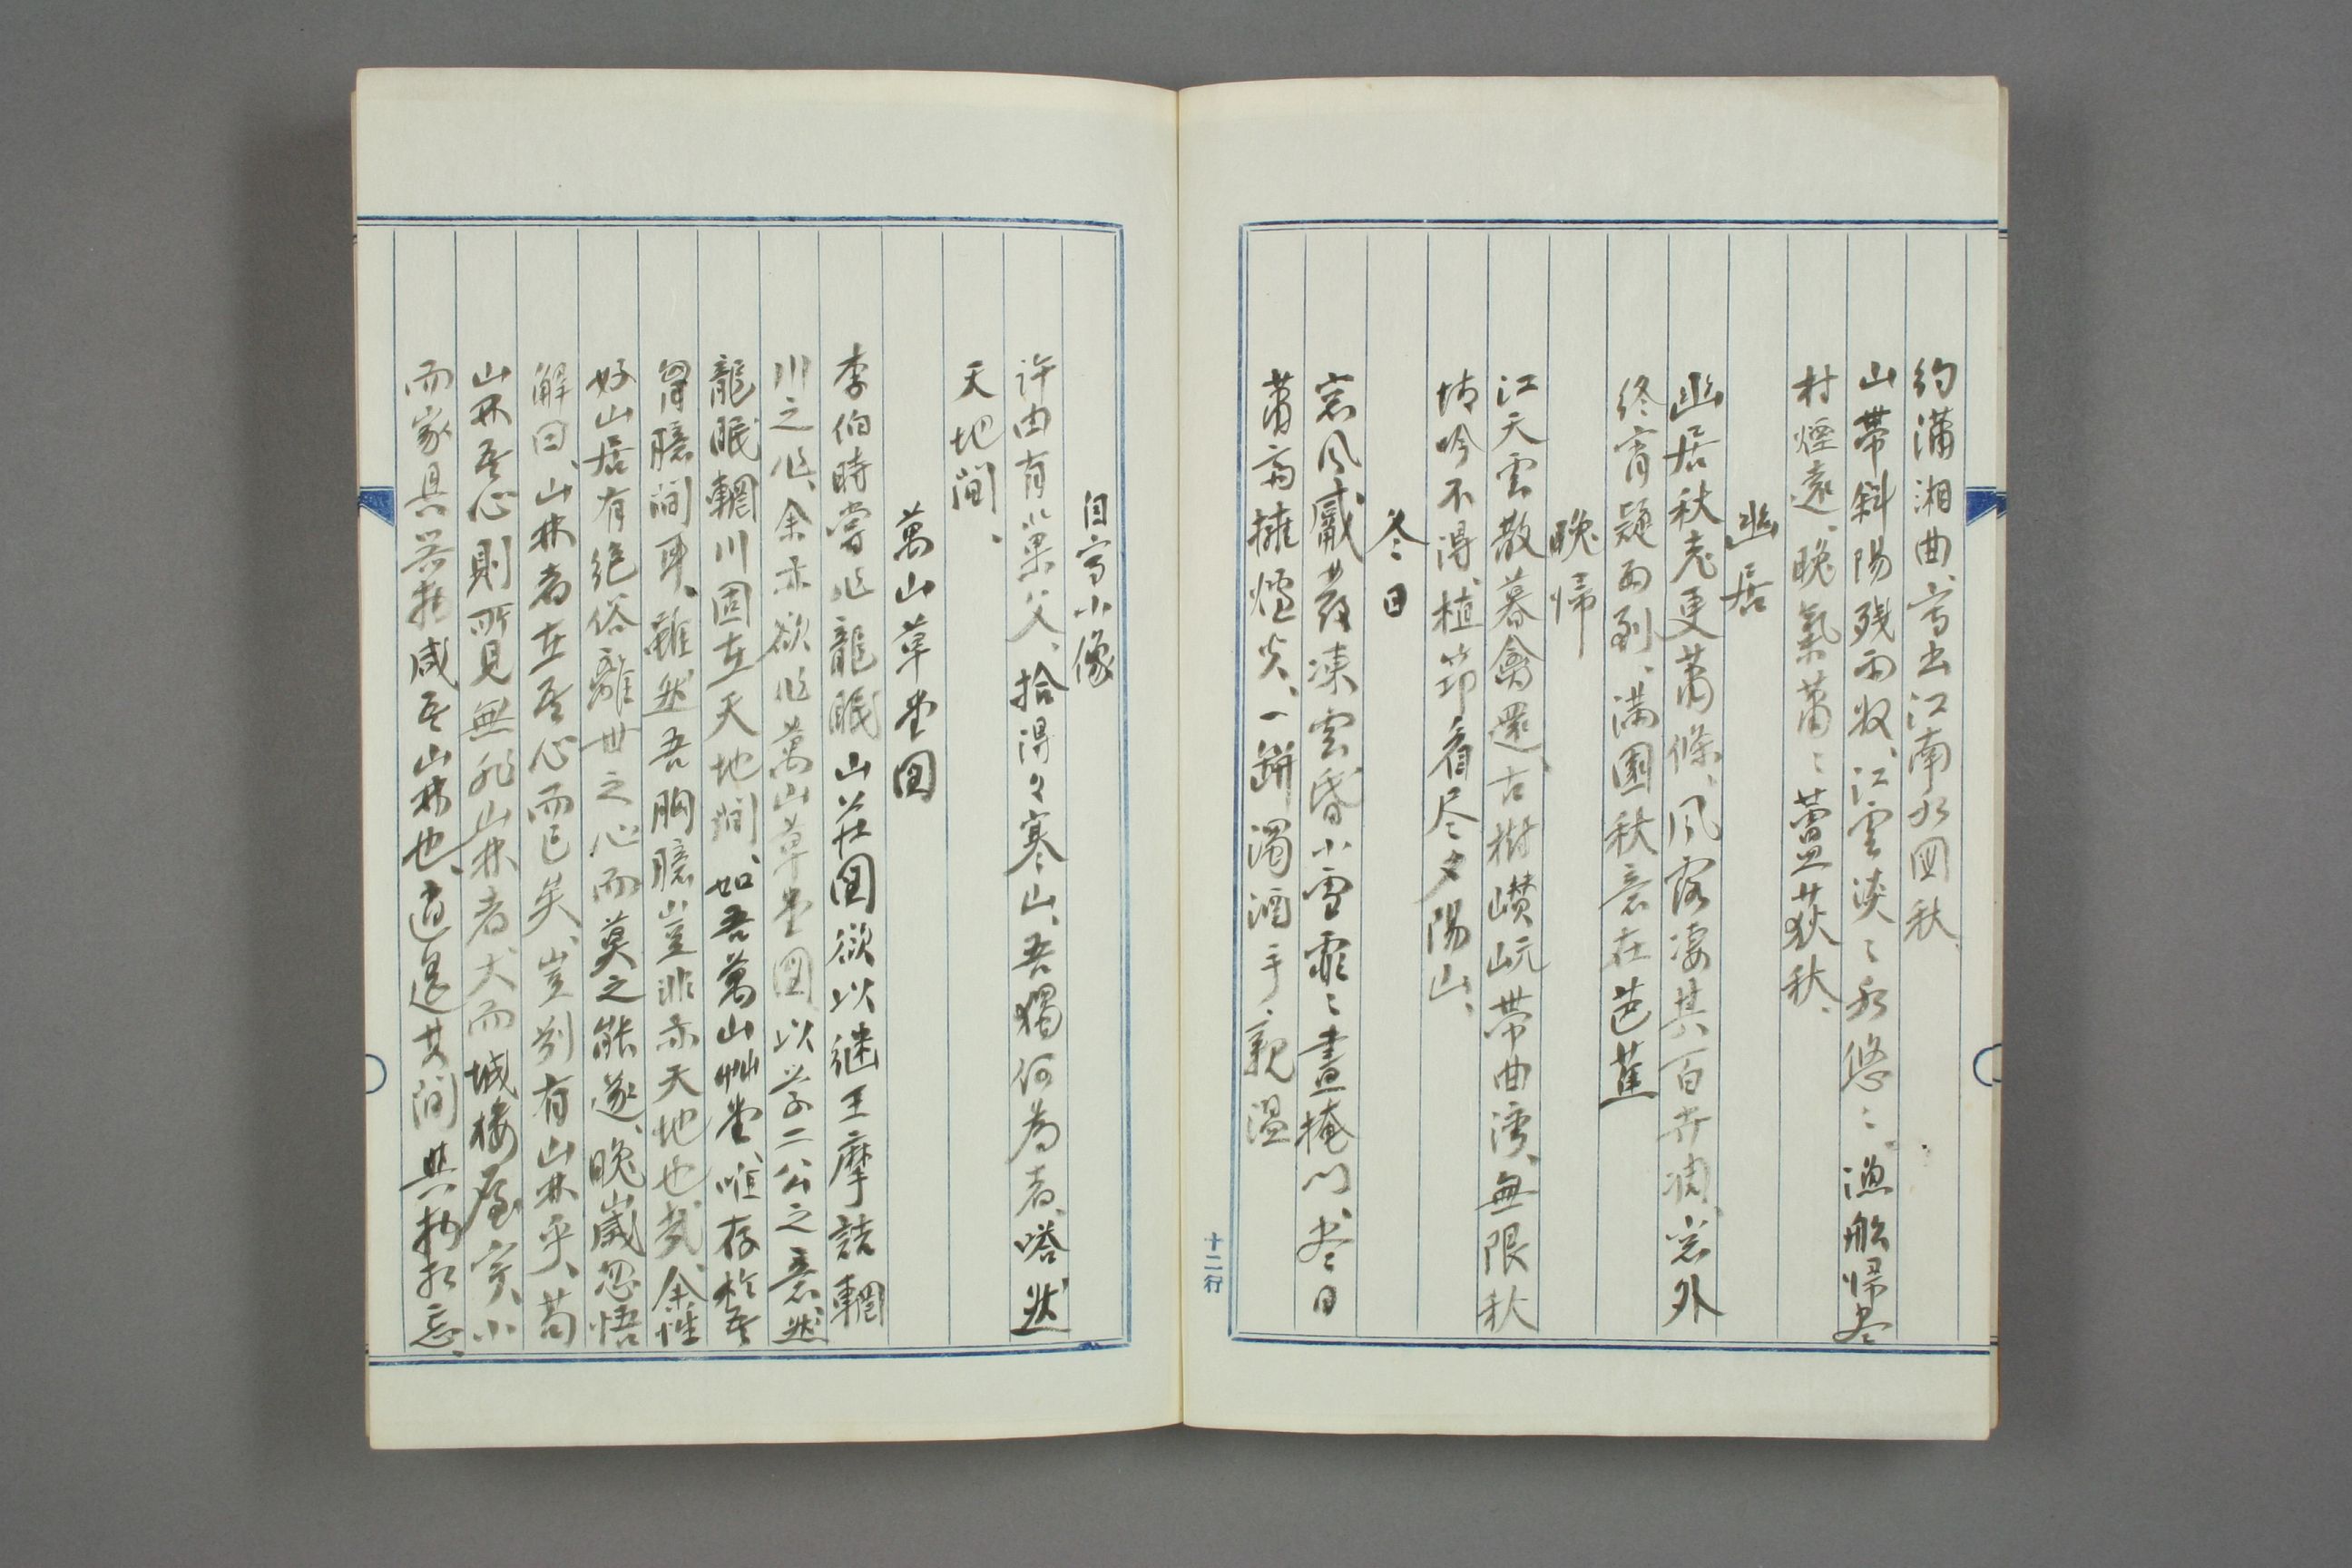 約瀟湘曲、寫出江南水図秋
山帶斜陽殘雨收、江雲淡〻水悠〻、漁船帰尽
村煙遠、晚氣蕭〻蘆荻秋、
幽居
幽居秋老更蕭條、風露凄其百卉凋、窓外
終宵疑雨到、満園秋意在芭蕉
晚帰
江天雲散暮禽還、古樹巑岏帶曲湾、無限秋
情吟不得、植筇看尽夕陽山、
冬日
窓風威發凍雲昏、小雪霏〻晝掩門、尽日
蕭齋擁爐火、一缾濁酒手親温
十二行
自寫小像
許由有巢父、拾得々寒山、吾獨何為者、嗒然
天地間、
萬山草堂図
李伯時嘗作龍眠山莊図欲以継王摩詰輞
川之作、余亦欲作萬山草堂図、以学二公之意、然
龍眠輞川固在天地間、如吾萬山艸堂、唯存於吾
胷臆間耳、雖然吾胸臆豈非亦天地也哉、余性
好山居有絶俗離世之心而莫之能遂、晚歲忽悟
解曰、山林者在吾心而已矣、豈别有山林乎、苟
山林吾心則所見無非山林者、大而城楼屋宇、小
而家具器批咸吾山林也、逍遥其間與物相忘、